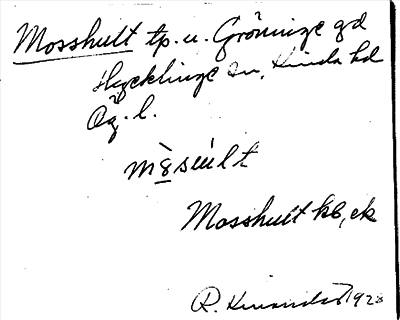 Mosshult tp. u. Gröninge gd
Hycklinge sn, Kinda hd
Ög. l.
Mosshult kb, ek
R. 1928